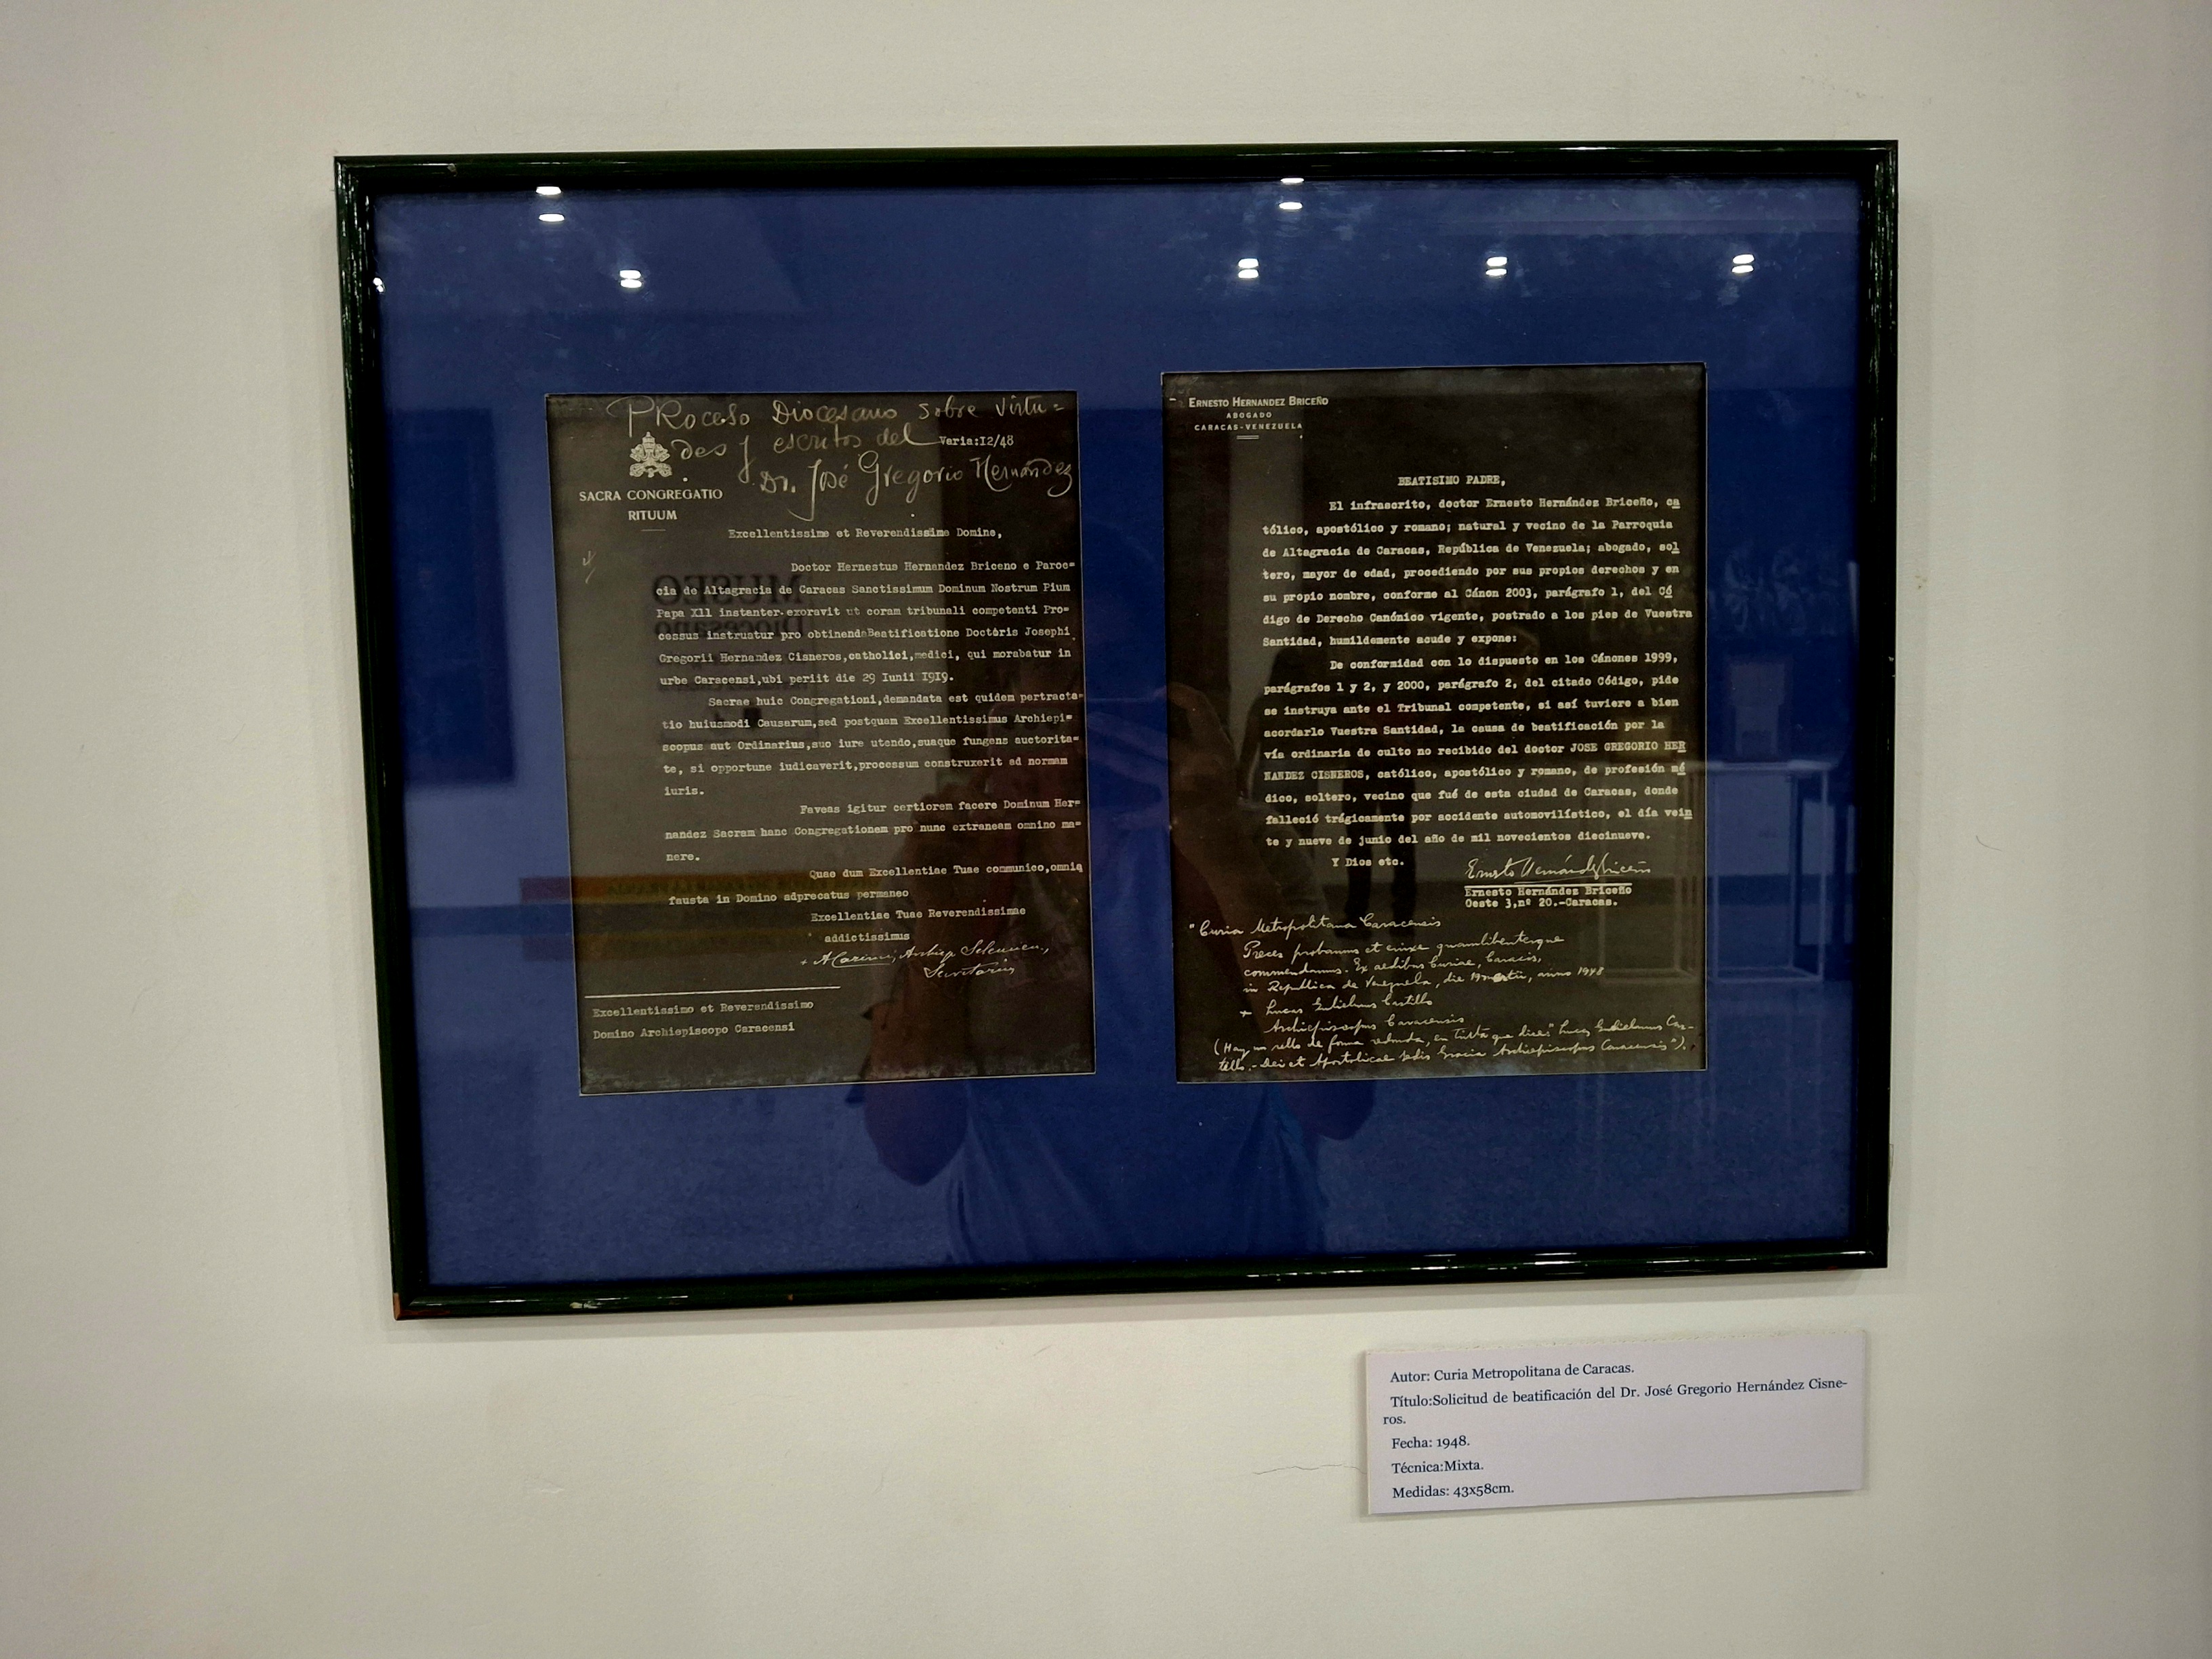 PRoceso Diocesano sobre virtu=
des y escritos del
Varia:I2/48
Dr. José Gregorio Hernández
SACRA CONGREGATIO
RITUUM
Excellentissime et Reverendissime Domine,
Doctor Hernestus Hernandez Briceno e Paroe=
cia de Altagracia de Caracas Sanctissimum Dominum Nostrum Pium
Papa XII instanter exoravit ut coram tribunali competenti Pro=
cessus instruatur pro obtinenda Beatificatione Doctoris Josephi
Gregorii Hernandez Cisneros,catholici,medici, qui morabatur in
urbe Caracensi,ubi periit die 29 Iunii I9I9.
Sacrae huic Congregationi,demandata est quidem pertracta=
tio huiusmodi Causarum,sed postquam Excellentissimus Archiepi=
scopus aut Ordinarius,suo iure utendo,suaque fungens auctorita=
te, si opportune iudicaverit,processum construxerit ad normam
iuris.
Faveas igitur certiorem facere Dominum Her=
nandez Sacram hanc Congregationem pro nunc extraneam omnino ma=
nere.
Quae dum Excellentiae Tuae communico,omnia
fausta in Domino adprecatus permaneo
Excellentiae Tuae Reverendissimae
addictissimus
+ A Carinci, Archiep Seleucien.,
Secretarius
Excellentissimo et Reverendissimo
Domino Archiepiscopo Caracensi
ERNESTO HERNANDEZ BRICEÑO
ABOGADO
CARACAS-VENEZUELA
BEATISIMO PADRE,
El infrascrito, doctor Ernesto Hernández Briceño, ca
tólico, apostólico y romano; natural y vecino de la Parroquia
de Altagracia de Caracas, República de Venezuela; abogado, sol
tero, mayor de edad, procediendo por sus propios derechos y en
su propio nombre, conforme al Cánon 2003, parágrafo 1, del Có
digo de Derecho Canónico vigente, postrado a los pies de Vuestra
Santidad, humildemente acude y expone:
De conformidad con lo dispuesto en los Cánones 1999,
parágrafos 1 y 2, y 2000, parágrafo 2, del citado Código, pide
se instruya ante el Tribunal competente, si así tuviere a bien
acordarlo Vuestra Santidad, la causa de beatificación por la
vía ordinaria de culto no recibido del doctor JOSE GREGORIO HER
NANDEZ CISNEROS, católico, apostólico y romano, de profesión mé
dico, soltero, vecino que fué de esta ciudad de Caracas, donde
falleció trágicamente por accidente automovilístico, el día vein
te y nueve de junio del año de mil novecientos diecinueve.
Y Dios etc.
Ernesto Hernández Briceño
Ernesto Hernández Briceño
Oeste 3,nº 20.-Caracas.
"Curia Metropolitana Caracensis
Preces probamus et enixe quamlibenterque
commendamus. Ex aedibus Curiae, Caracis,
in Republica de Venezuela, die 19 martii, anno 1948
+ Lucas Gulielmus Castillo
Archiepiscopus Caracensis
(Hay un sello de forma redonda, en tinta que dice: "Lucas Gulielmus Cas-
tillo.- Dei et Apostolicae Sedis Gracia Archiepiscopus Caracensis").
MUSEO
Diocesano
Autor: Curia Metropolitana de Caracas.
Título:Solicitud de beatificación del Dr. José Gregorio Hernández Cisne-
ros.
Fecha: 1948.
Técnica:Mixta.
Medidas: 43x58cm.